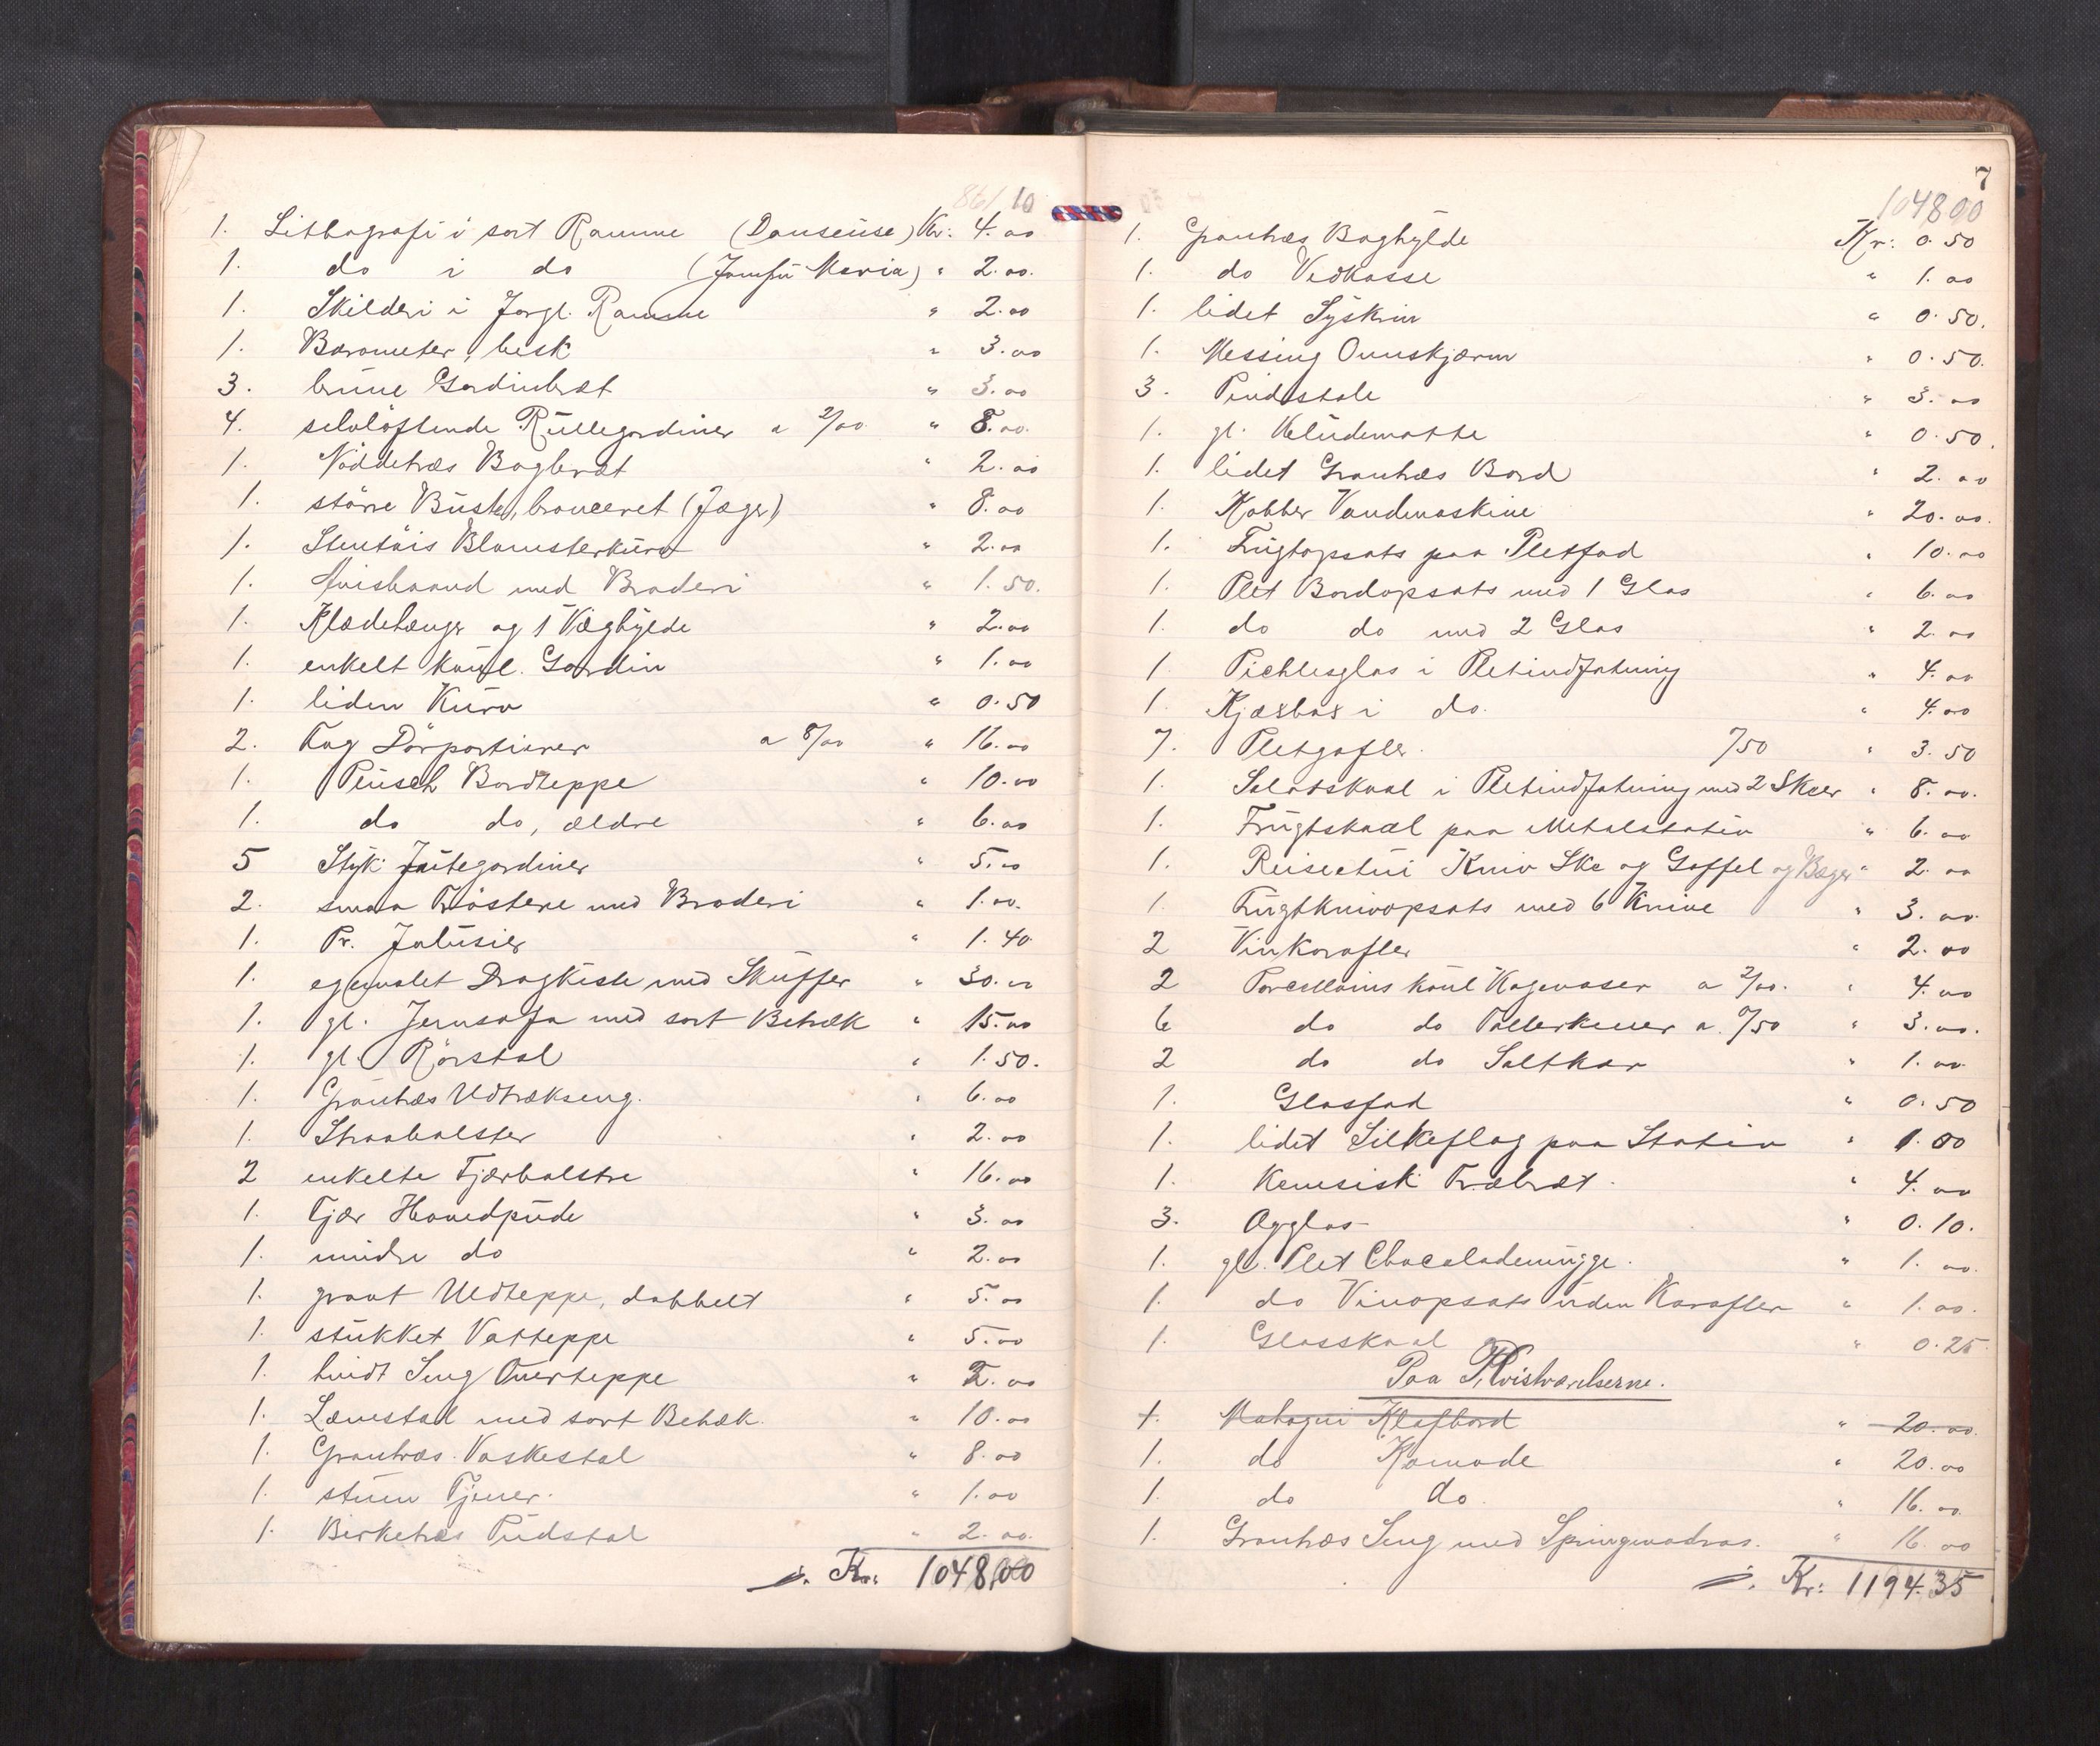 861 10
1. Lithografi i sort Ramme (Danseuse) Kr. 4.00
1. do i do (Jomfru Maria) " 2.00.
1. Skilderi i Forgl. Ramme " 2.00
1. Barometer, besk " 3.00
3. brune Gardinbræt " 3.00
4. selvløftende Rullegardiner a 2/00 " 8.00.
1. Nøddetræs Bogbræt " 2.00
1. större Buste, bronceret (Jæger) " 8.00
1. Stentöis Blomsterkurv " 2.00
1. Avisbaand med Broderi " 1.50.
1. Klædehænger og 1 Væghylde " 2.00
1. enkelt kaül. Gardin " 1.00
1. liden Kurv " 0.50
2. Fag Dörportierer a 8/00 " 16.00
1. Plusch Bordteppe " 10.00
1. do do, ældre " 6.00
5 Styk Jutegardiner " 5.00
2. smaa Tröstere med Broderi " 1.00.
1. Pr. Jalusier " 1.40
1. egemalet Dragkiste med Skuffer " 30.00
1. gl. Jernsofa med sort Betræk " 15.00
1. gl. Rörstol " 1.50.
1. Grantræs Udtrækseng. " 6.00
1. Straabolster " 2.00
2 enkelte Fjærbolstre " 16.00
1. Fjær Hovedpude " 3.00
1. mindre do " 2.00
1. graat Uldteppe, dobbelt " 5.00
1. stukket Vatteppe " 5.00
1. hvidt Seng Overteppe " 2.00
1. Lænestol med sort Betræk. " 10.00
1. Grantræs Vaskestol " 8.00
1. stum Tjener. " 1.00
1. Birketræs Pudstol " 2.00.
Kr. 1048,00
7
104800
1. Grantræs Boghylde Kr: 0.50
1. do Vedkasse " 1.00
1. lidet Syskrin " 0.50.
1. Messing Ovnskjærm " 0.50.
3. Pindstole " 3.00
1. gl. Kludematte " 0.50.
1. lidet Grantræs Bord " 2.00
1. Kobber Vandmaskine " 20.00.
1. Frugtopsats paa Pletfad " 10.00
1. Plet Bordopsats med 1 Glas " 6.00
1. do do med 2 Glas " 2.00
1 Picklesglas i Pletindfatning " 4.00
1. Kjæxbox i do. " 4.00
7. Pletgafler. 0/50 " 3.50
1. Salatskaal i Pletindfatning med 2 Skeer " 8.00.
1. Frugtskaal paa Metalstativ " 6.00
1. Reiseetui Kniv Ske og Gaffel og Bæger " 2.00
1. Frugtknivopsats med 6 Knive " 3.00.
2 Vinkarafler " 2.00
2 Porcellains kaul Kagevaser a 2/00. " 4.00
6 do do Tallerkener a. 0/50 " 3.00.
2 do do Saltkar " 1.00.
1. Glasfad " 0.50
1. lidet Silkeflag paa Stativ " 1.00
1. Kinesisk Træbræt. " 4.00
3. Ægglas " 0.10.
1. gl. Plet Chocolademugge. " 1.00.
1. do Vinopsats uden Karafler " 1.00.
1. Glasskaal " 0.25
Paa Kvistværelserne.
1. Mahogni Klafbord " 20.00.
1. do Komode " 20.00
1. do do. " 16.00.
1. Grantræs Seng med Springmadras. " 16.00
Kr: 1194.35